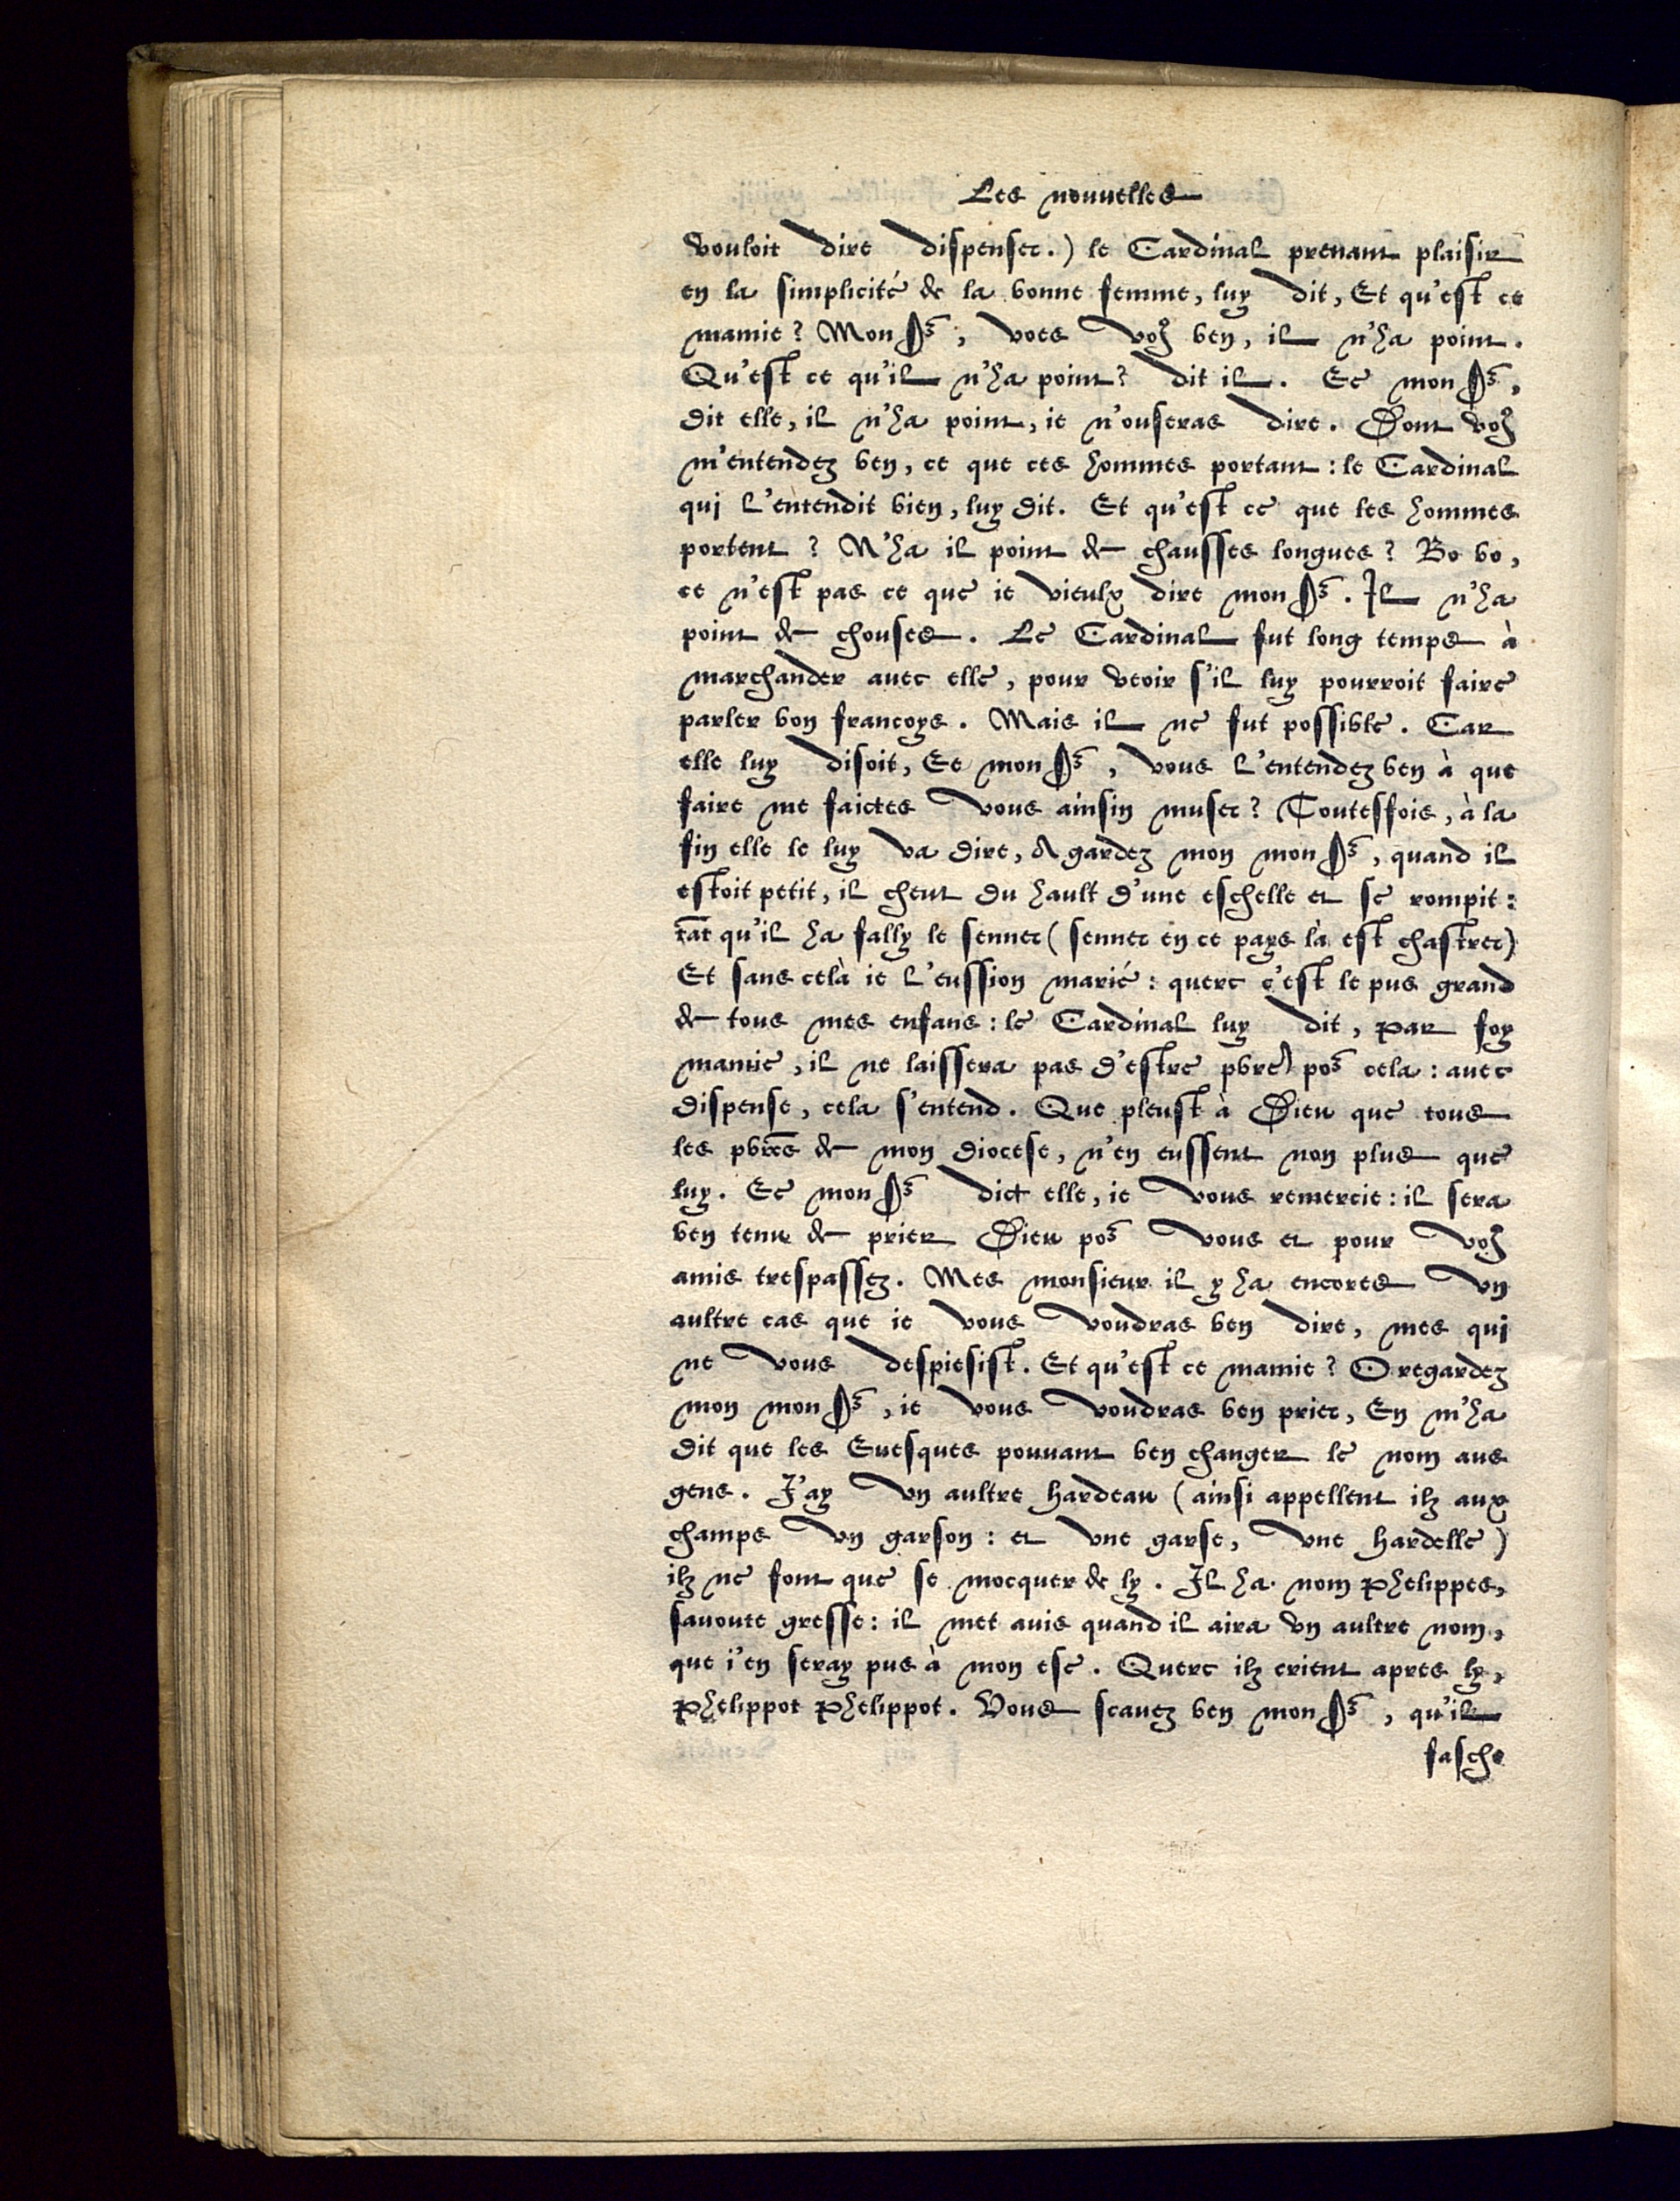 Les nouuelles
vouloit dire dispenser.) le Cardinal prenant plaisir
en la simplicité de la bonne femme, luy dit, Et qu'est ce
mamie? Mon Sr, voes voꝰ ben, il n'ha point.
Qu'est ce qu'il n'ha point? dit il. Ee mon Sr,
dit elle, il n'ha point, ie n'ouseras dire. Dont voꝰ
m'entendez ben, ce que ces hommes portant: le Cardinal
qui l'entendit bien, luy dit. Et qu'est ce que les hommes
portent? N'ha il point de chausses longues? Bo bo,
ce n'est pas ce que ie vieulx dire mon Sr. Il n'ha
point de chouses. Le Cardinal fut long temps à
marchander auec elle, pour veoir s'il luy pourroit faire
parler bon francoys. Mais il ne fut possible. Car
elle luy disoit, Ee mon Sr, vous l'entendez ben à que
faire me faictes vous ainsin muser? Toutesfois, à la
fin elle le luy va dire, Agardez mon mon Sr, quand il
estoit petit, il cheut du hault d'une eschelle et se rompit:
tāt qu'il ha fally le senner (senner en ce pays là est chastrer)
Et sans celà ie l'eussion marié: quere c'est le pus grand
de tous mes enfans: le Cardinal luy dit, par foy
mamie, il ne laissera pas d'estre pbre por cela: auec
dispense, cela s'entend. Que pleust à Dieu que tous
les pbres de mon diocese, n'en eussent non plus que
luy. Ee mon Sr dict elle, ie vous remercie: il sera
ben tenu de prier Dieu por vous et pour voꝰ
amis trespassez. Mes monsieur il y ha encores vn
aultre cas que ie vous voudras ben dire, mes qui
ne vous despiesist. Et qu'est ce mamie? O regardez
mon mon Sr, ie vous voudras ben prier, En m'ha
dit que les Euesques pouuant ben changer le nom aus
gens. J'ay vn aultre hardeau (ainsi appellent ilz aux
champs vn garson: et vne garse, vne hardelle)
ilz ne font que se mocquer de ly. Il ha nom Phelippes,
sauoute gresse: il met auis quand il aira vn aultre nom,
que i'en seray pus à mon ese. Quere ilz crient apres ly,
Phelippot Phelippot. Vous scauez ben mon Sr, qu'il
fasche